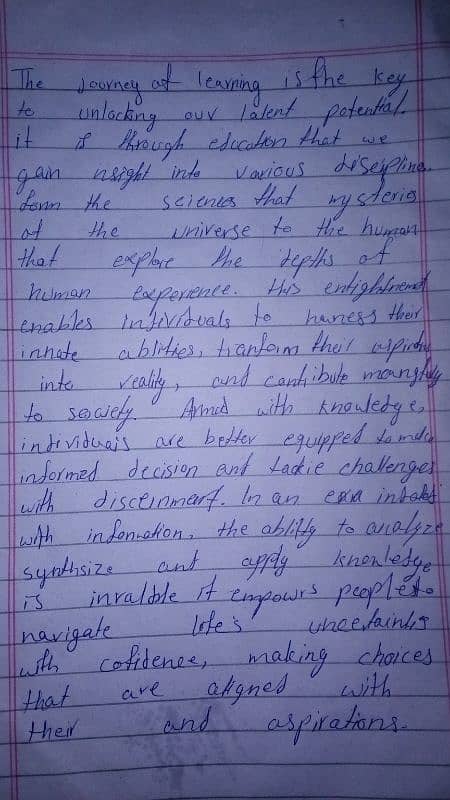 The Journey of learning is the key
to unlocking our latent potential.
it is through education that we
gain nsight into various discipline.
form the sciences that mysteries
of the universe to the human
that explore the depths of
human experience. this enlightnment
enables individuals to harness their
innate ablities, tranform their
into reality, and contibute
to society. Armed with knowledge,
individuals are better equipped to make
informed decision and tackle challenges
with In an era
with information, the ablity to analyze
synthsize and apply knowledge
is invalable it empowrs people to
navigate life's uncertaintis
with cofidence, making choices
that are aligned with
their and aspirations.